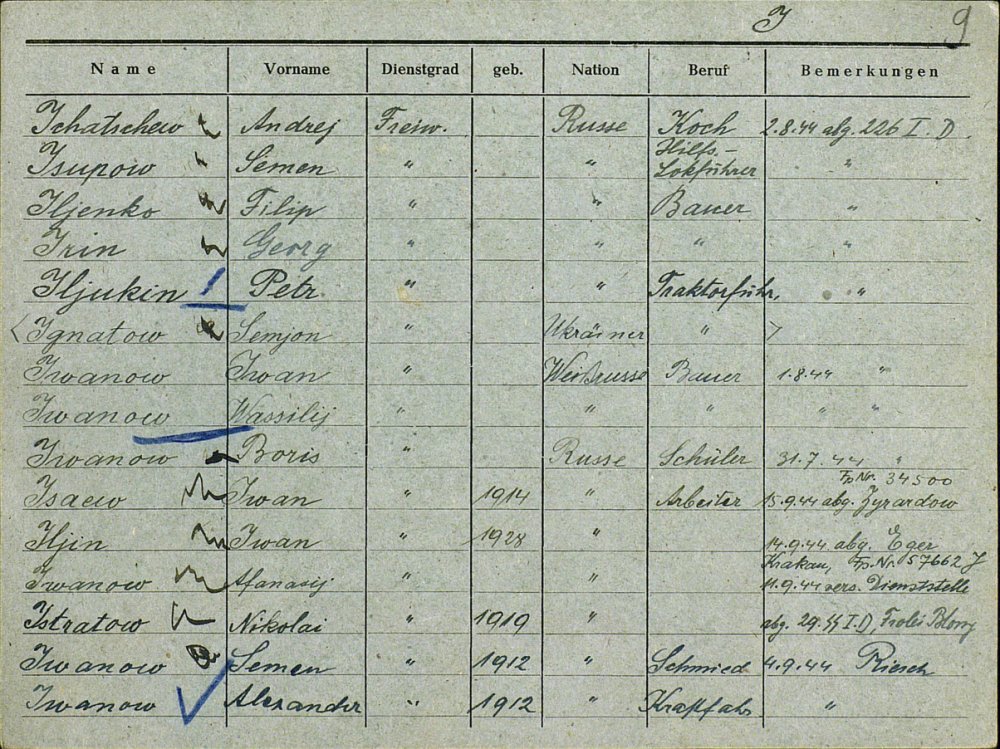 J 9
Name Vorname Dienstgrad geb. Nation Beruf Bemerkungen
Ichatschew Andrej Freiw. Russe Koch 2.8.44 abg. 226 I. D.
Isupow " Semen " " Hilfs.-Lokführer "
Iljenko Filip " " Bauer "
Irin Georg " " " "
Iljukin Petr " " Traktorführ. "
<Ignatow Semjon " Ukräiner " >
Iwanow Iwan " Weißrusse Bauer 1.8.44 "
Iwanow Wassilij " " " " "
Iwanow Boris " Russe Schüler 31.7.44 "
Isaew Iwan " 1914 " Arbeiter FpNr. 34500 15.9.44 abg. Zyrardow
Iljin Iwan " 1928 " 14.9.44 abg. Eger
Iwanow Afanasij " " Krakau, Fp.Nr. 57662 J 11.9.44 vers. Dienststelle
Istratow Nikolai " 1919 " abg. 29. SS I.D,
Iwanow Semen " 1912 " Schmied 4.9.44 Riesch
Iwanow Alexander " 1912 " Kraftfahr "